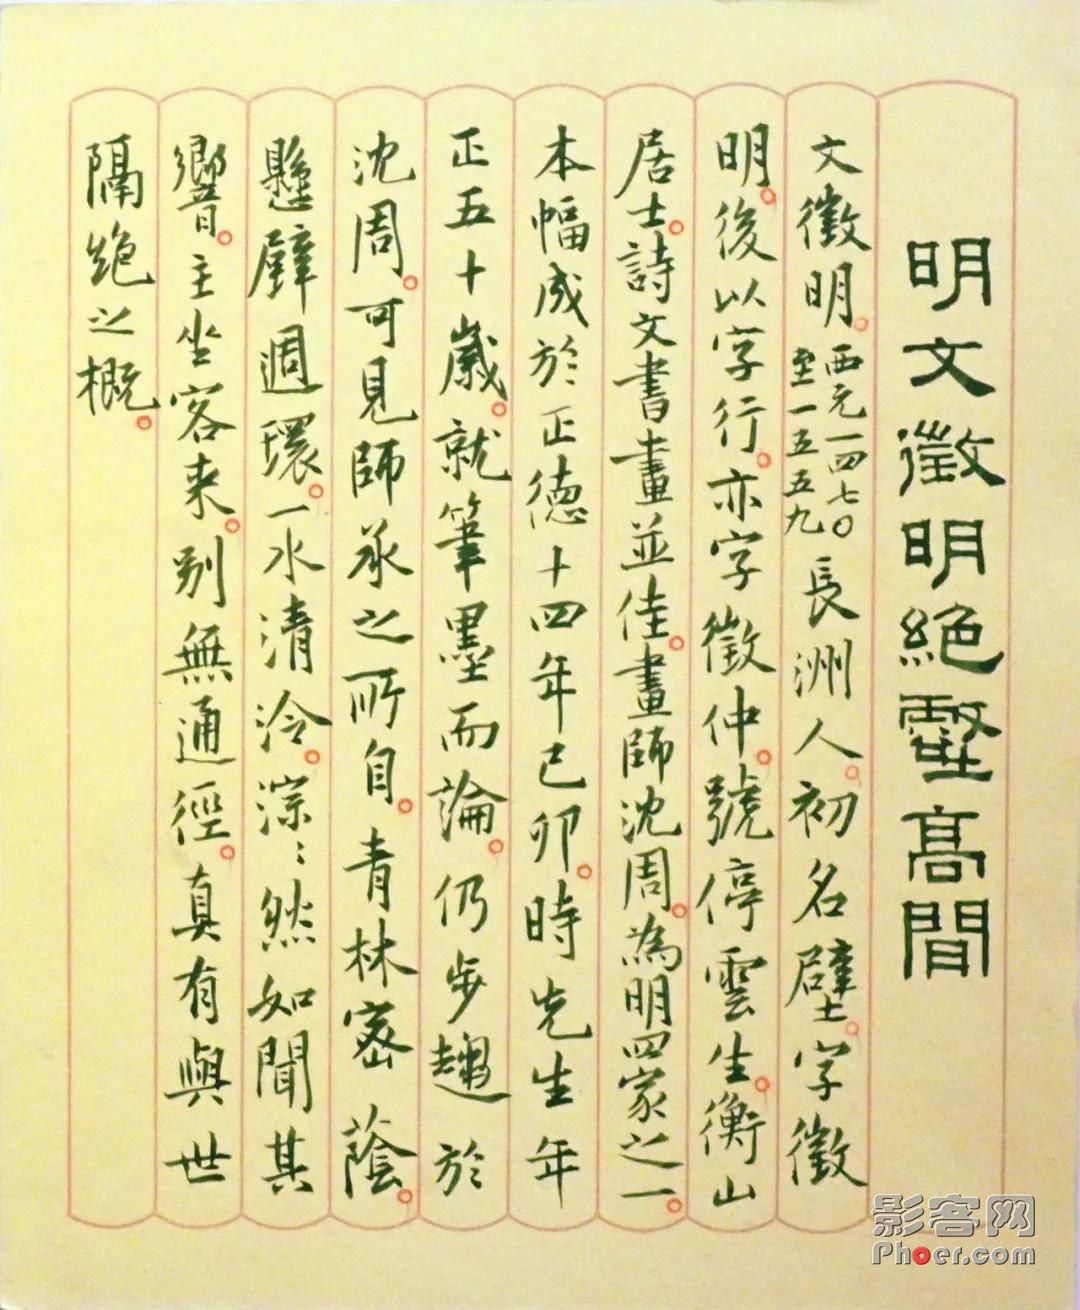 明文徵明絕壑高閒
文徵明。西元一四七〇至一五五九長洲人。初名壁。字徵
明。後以字行。亦字徵仲。號停雲生。衡山
居士。詩文書畫並佳。畫師沈周。為明四家之一。
本幅成於正德十四年己卯。時先生年
正五十歲。就筆墨而論。仍步趨於
沈周。可見師承之所自。青林密蔭。
懸壁週環。一水清泠。淙〻然如聞其
響。主坐客来。別無通徑。真有與世
隔絶之概。
影客网
Phoer.com